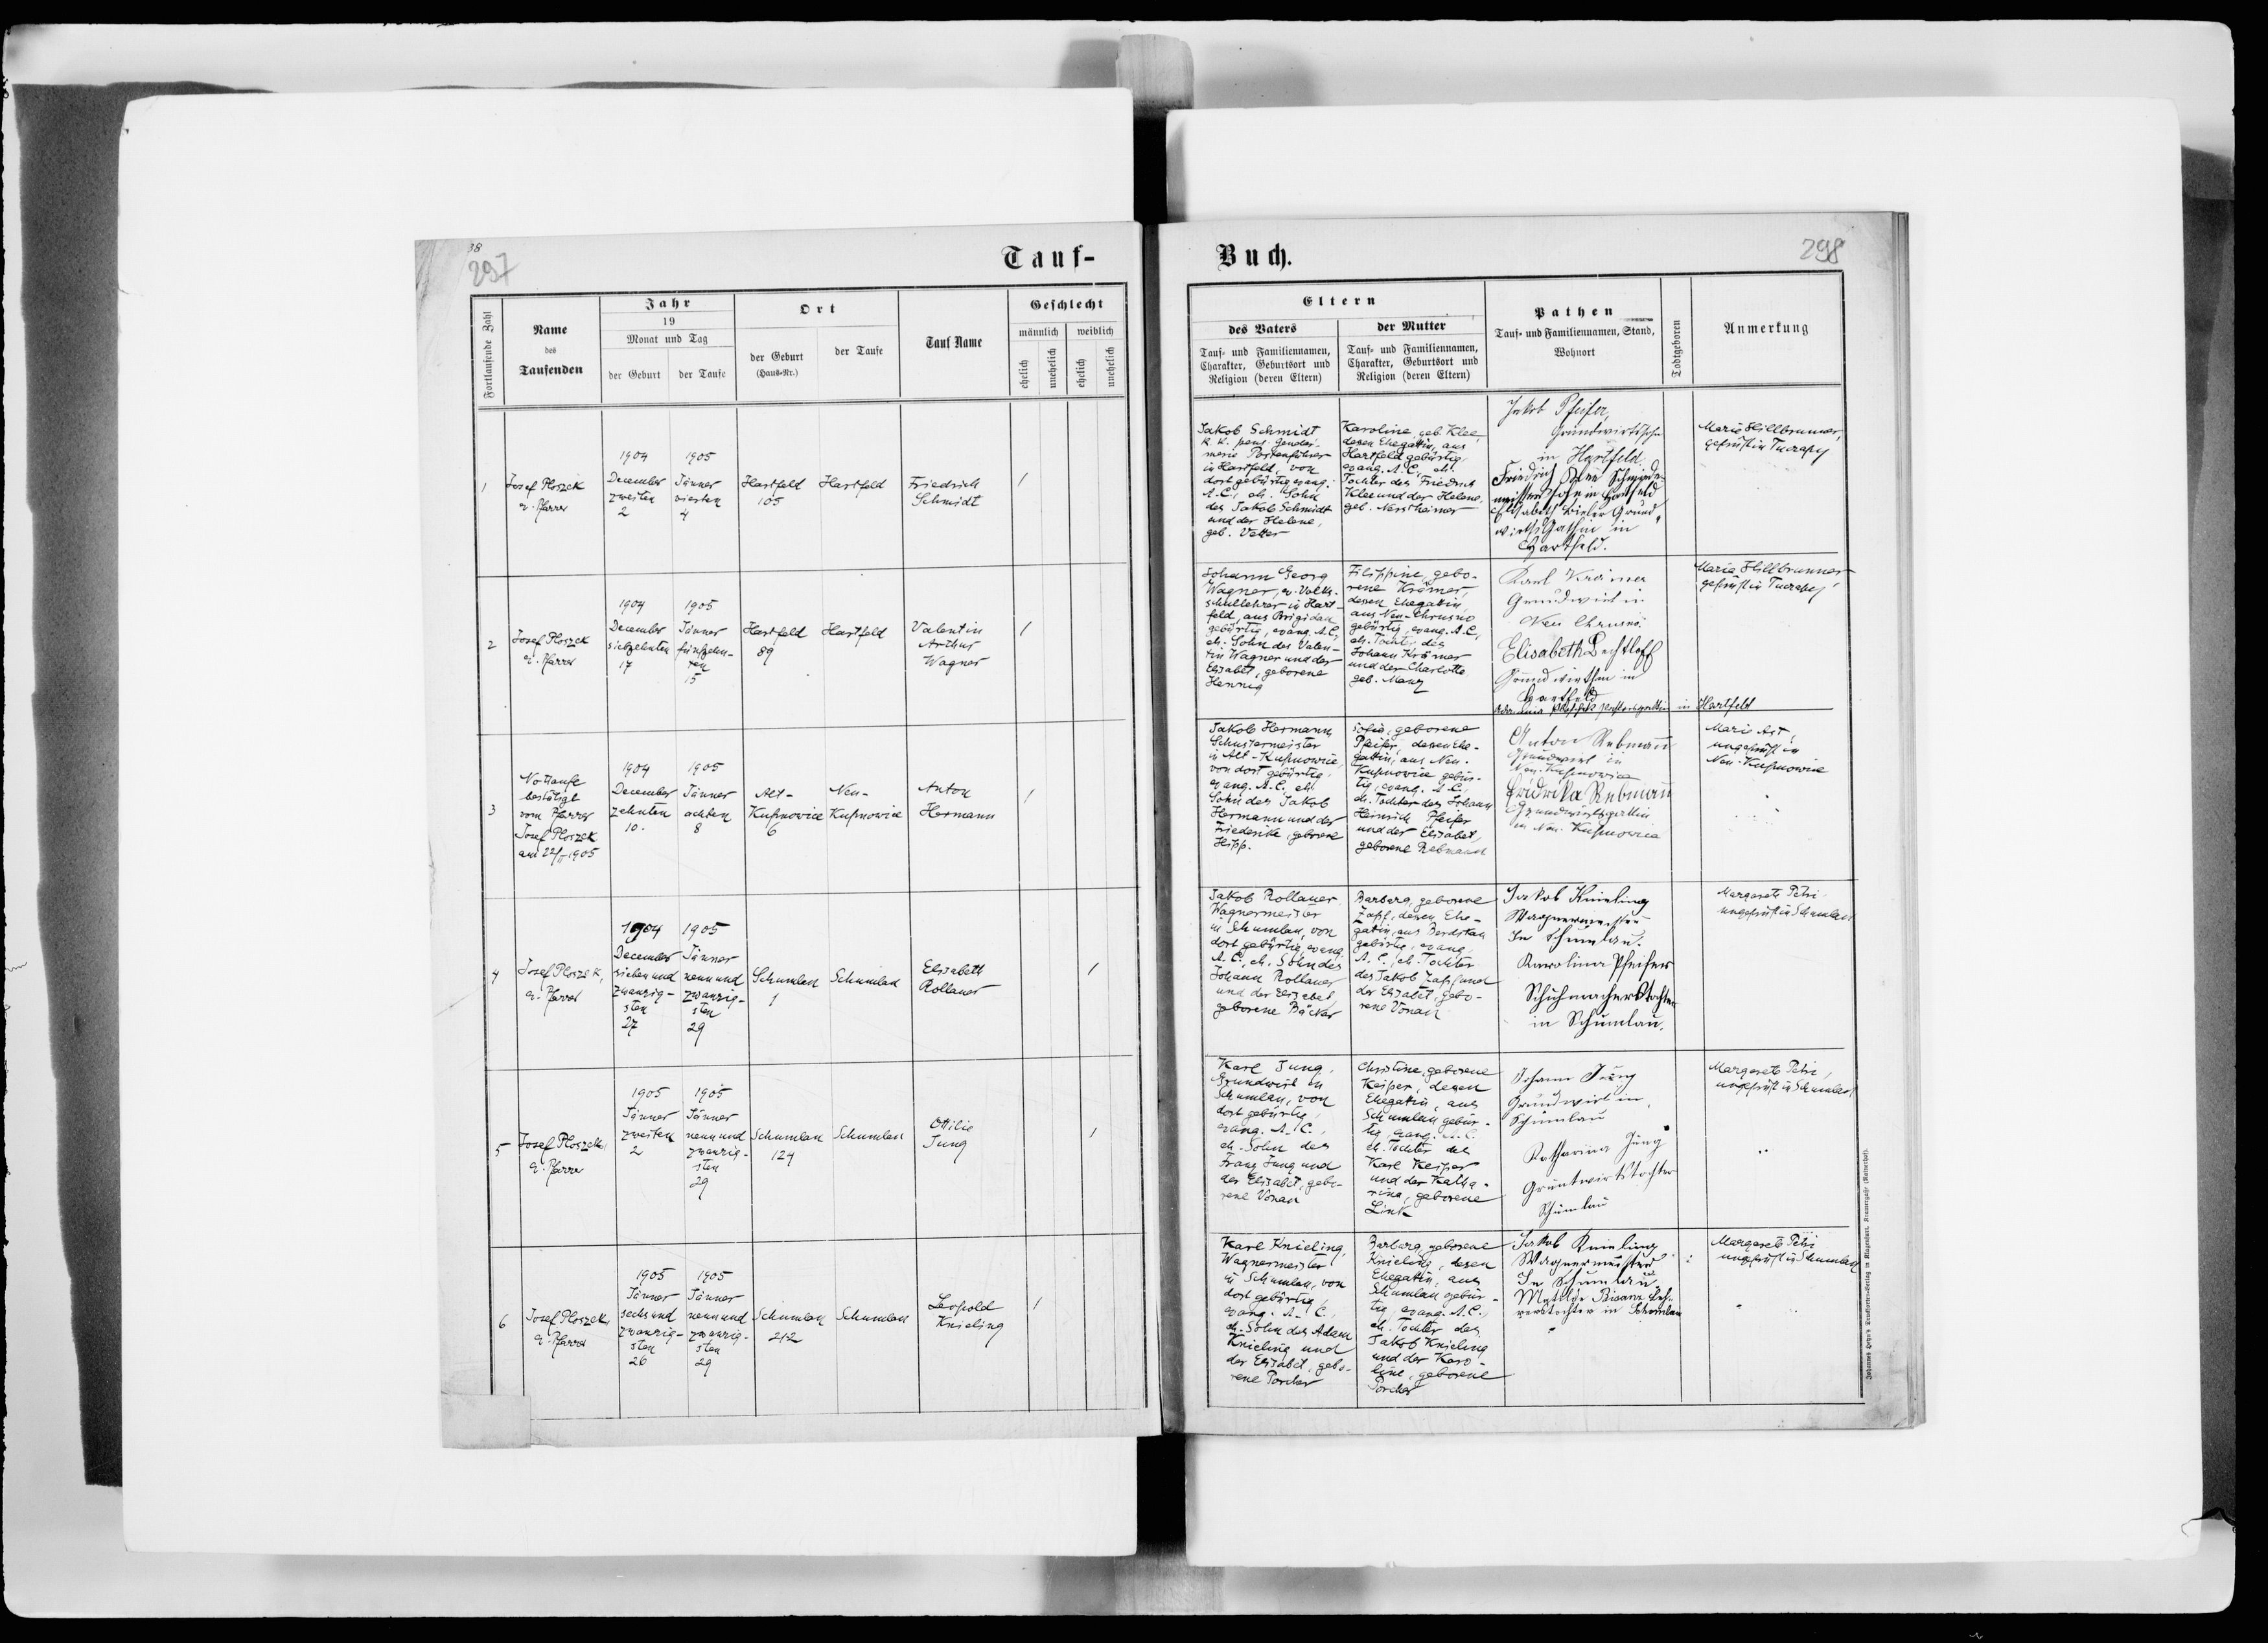 38
297
Tauf-
Fortlaufende Zahl
Name
des
Taufenden
Jahr
19
Monat und Tag
der Geburt
der Taufe
Ort
der Geburt
(Haus-Nr.)
der Taufe
Tauf Name
Geschlecht
männlich
weiblich
ehelich
unehelich
ehelich
unehelich
1
Josef Ploszek
ev. Pfarrer
1904
December
zweiten
2
1905
Jänner
vierten
4
Hartfeld
105
Hartfeld
Friedrich
Schmidt
/
2
Josef Ploszek
ev. Pfarrer
1904
December
siebzehnten
17
1905
Jänner
fünfzehn-
ten
15
Hartfeld
89
Hartfeld
Valentin
Arthur
Wagner
/
3
Nottaufe
bestätigt
vom Pfarrer
Josef Ploszek
am 22/II 1905
1904
December
zehnten
10.
1905
Jänner
achten
8
Alt-
Kupnowice
6
Neu-
Kupnowice
Anton
Hermann
/
4
Josef Ploszek,
ev. Pfarrer
1904
December
sieben und
zwanzig-
sten
27
1905
Jänner
neun und
zwanzig-
sten
29
Schumlau
1
Schumlau
Elisabeth
Rollauer
/
5
Josef Ploszek,
ev. Pfarrer
1905
Jänner
zweiten
2
1905
Jänner
neun und
zwanzig-
sten
29
Schumlau
124
Schumlau
Ottilie
Jung
/
6
Josef Ploszek,
ev. Pfarrer
1905
Jänner
sechs und
zwanzig-
sten
26
1905
Jänner
neun und
zwanzig-
sten
29
Schumlau
212
Schumlau
Leopold
Knieling
/
Buch.
298
Eltern
des Vaters
Tauf- und Familiennamen,
Charakter, Geburtsort und
Religion (deren Eltern)
der Mutter
Tauf- und Familiennamen,
Charakter, Geburtsort und
Religion (deren Eltern)
Pathen
Tauf- und Familiennamen, Stand,
Wohnort
Todtgeboren
Anmerkung
Jakob Schmidt
k. k. pens. Gendar-
merie Postenführer
in Hartfeld, von
dort gebürtig evang.
A.C., eh. Sohn
des Jakob Schmidt
und der Helene,
geb. Vetter
Karoline, geb. Klee,
dessen Ehegattin, aus
Hartfeld gebürtig,
evang. A.C., eh.
Tochter des Friedrich
Klee und der Helene,
geb.
Jakob Pfeifer,
Grundwirtssohn
in Hartfeld
Friedrich
in Hartfeld
Elisabeth Grund-
wirths Gathin in
Hartfeld.
Marie Hillbrunner,
geprüft in
Johann Georg
Wagner, ev. Volks-
schullehrer in Hart-
feld, aus Brigidau
gebürtig, evang. A.C.,
eh. Sohn des Valen-
tin Wagner und der
Elisabet, geborene
Hennig
Filippine, gebo-
rene Krämer,
dessen Ehegattin,
aus Neu-Chrusno
gebürtig, evang. A.C.,
eh. Tochter des
Johann Krämer
und der Charlotte
geb. Manz
Karl Krämer
Grundwirt in
Neu Chrusno.
Elisabeth Bechtloff
Grundwirthin in
Hartfeld
in Hartfeld
Maria Hillbrunner
geprüft in
Jakob Hermann
Schustermeister
in Alt-Kupnowice,
von dort gebürtig,
evang. A.C., eh.
Sohn des Jakob
Hermann und der
Friederike, geborene
Hipp.
Sofie, geborene
Pfeifer, dessen Ehe-
gattin, aus Neu-
Kupnowice gebür-
tig, evang. A.C.,
eh. Tochter des Johann
Heinrich Pfeifer
und der Elisabet,
geborene Rebmann
Anton Rebmann
Grundwirt in
Neu-Kupnowice
Fridrika Rebmann
Grundwirtsgattin
in Neu-Kupnowice
Marie Ast,
ungeprüft in
Neu-Kupnowice
Jakob Rollauer,
Wagnermeister
in Schumlau, von
dort gebürtig, evang.
A.C., eh. Sohn des
Johann Rollauer
und der Elisabet,
geborene Bäcker
Barbara, geborene
Zapf, dessen Ehe-
gattin, aus Berdikau
gebürtig, evang.
A.C., eh. Tochter
des Jakob Zapf und
der Elisabet, gebo-
rene Vonau
Jakob Knieling
Wagnermeister
In Schumlau.
Karolina Pfeifer
Schuhmacherstochter
in Schumlau.
Margarete Petri
ungeprüft in Schumlau
Karl Jung,
Grundwirt in
Schumlau, von
dort gebürtig,
evang. A.C.,
eh. Sohn des
Franz Jung und
der Elisabet, gebo-
rene Vonau
Christine, geborene
Keiper, dessen
Ehegattin, aus
Schumlau gebür-
tig, evang. A.C.
eh. Tochter des
Karl Keiper
und der Katha-
rina, geborene
Link
Johann Jung
Grundwirt in
Schumlau
Katharina Jung
Gruntwirtstochter
Schumlau
Margarete Petri,
ungeprüft in Schumlau
Karl Knieling,
Wagnermeister
in Schumlau, von
dort gebürtig,
evang. A.C.,
eh. Sohn des Adam
Knieling und
der Elisabet, gebo-
rene Porcher
Barbara, geborene
Knieling, dessen
Ehegattin, aus
Schumlau gebür-
tig, evang. A.C.,
eh. Tochter des
Jakob Knieling
und der Karo-
line, geborene
Porcher
Jakob Knieling
Wagnermeister
In Schumlau
Matilde Bisanz Leh-
rerstochter in Schumlau
Margarete Petri
ungeprüft in Schumlau